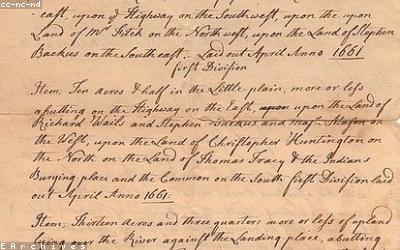 cc-nc-nd
east, upon ye Highway on the Southwest, upon the upon
Land of Mr Fitch on the Northwest, upon the Land of Stephen
Backus on the Southeast. Laid out April Anno 1661
first Division
Item; Ten acres & half in the Little-plain, more or less
abutting on the Highway on the East, upon upon the Land of
Richard Wails and Stephen Backus and majr. Mason on
the West, upon the Land of Christopher Huntington on
the North, on the Land of Thomas Tracy & the Indians
Burying place and the Common on the South first Division laid
out April Anno 1661.
Item; Thirteen acres and three quarters more or less of upland
over the River against the Landing place, abutting
EArchives